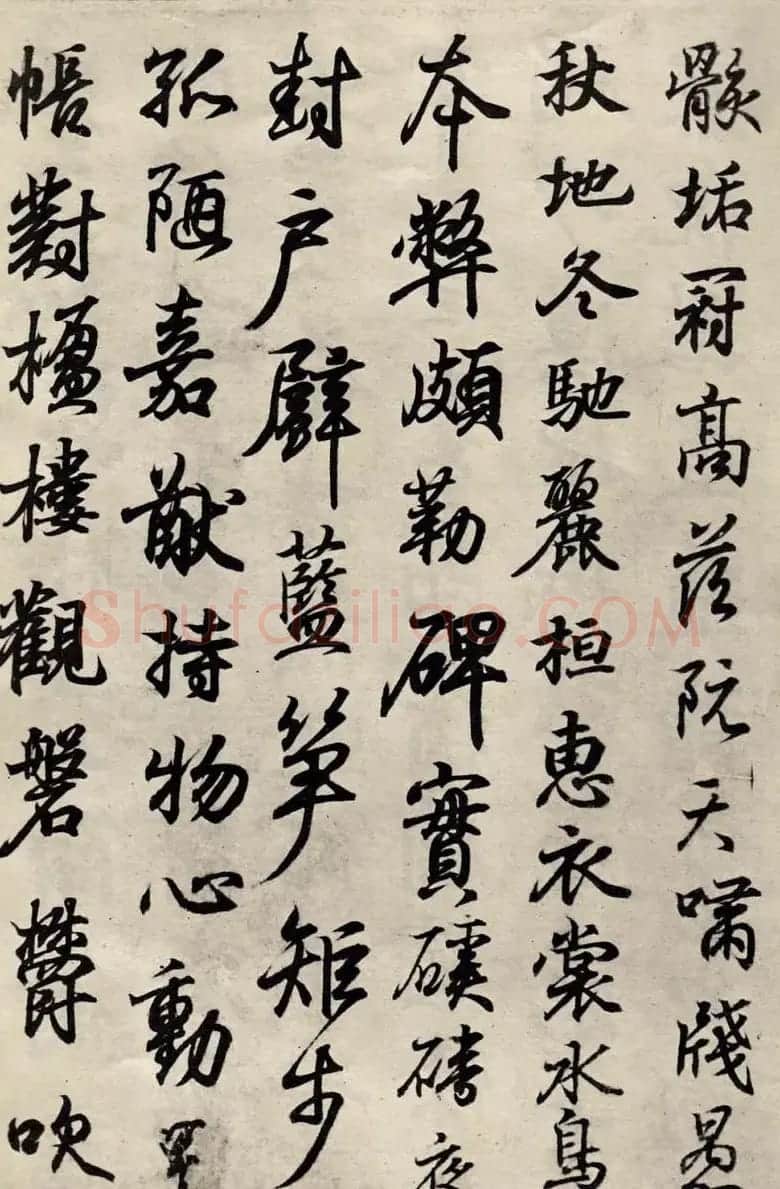 骸垢高阮天嘯牋
秋地冬馳麗桓惠衣裳水鳥
本弊頗勒碑實磧夜
封戶藍筆矩步
孤陋嘉猷持物心動
帳對楹樓觀磐鬱吹
Shufaziliao.COM